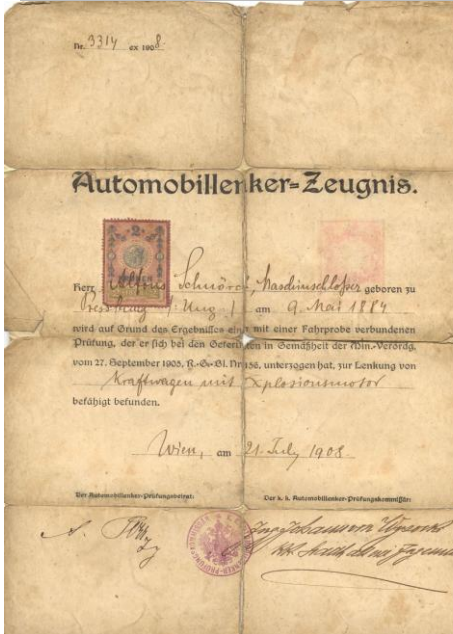 Nr. 3314 ex 1908.
Automobillenker=Zeugnis.
2
Herr Alfons Schmörch, Maschinschlosser geboren zu
Pressburg i/Ung. am 9. Mai 1884
wird auf Grund des Ergebnisses einer mit einer Fahrprobe verbundenen
Prüfung, der er sich bei den Gefertigten in Gemäßheit der Min.-Verordg.
vom 27. September 1905, R.-G.-Bl. Nr. 156, unterzogen hat, zur Lenkung von
Kraftwagen mit Xplosionsmotor
befähigt befunden.
Wien, am 21. July 1908.
Der Automobillenker-Prüfungsbeirat: Der k. k. Automobillenker-Prüfungskommissär:
A.